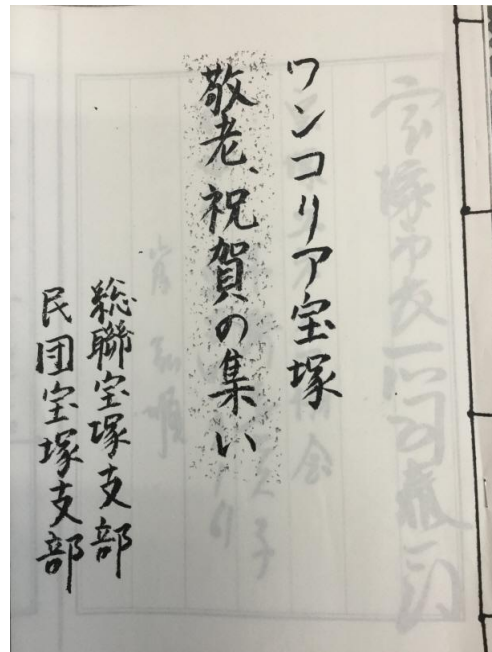 ワンコリア宝塚
敬老、祝賀の集い
総聯宝塚支部
民団宝塚支部